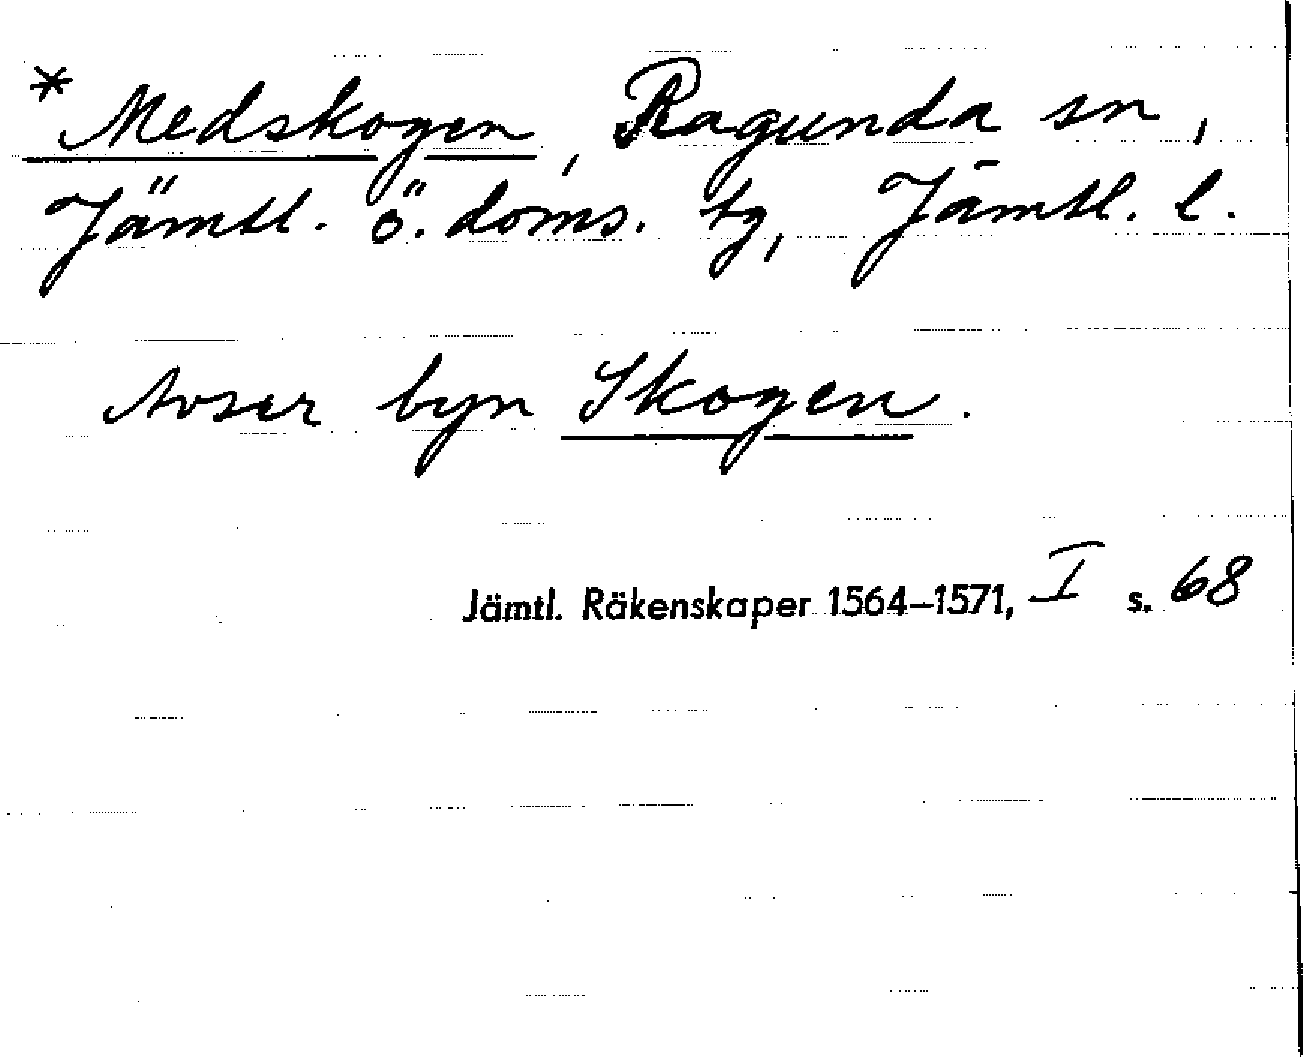 * Medskogen, Ragunda sn,
Jämtl. ö. doms. tg, Jämtl. l.
Avser byn Skogen.
Jämtl. Räkenskaper 1564–1571, I s. 68